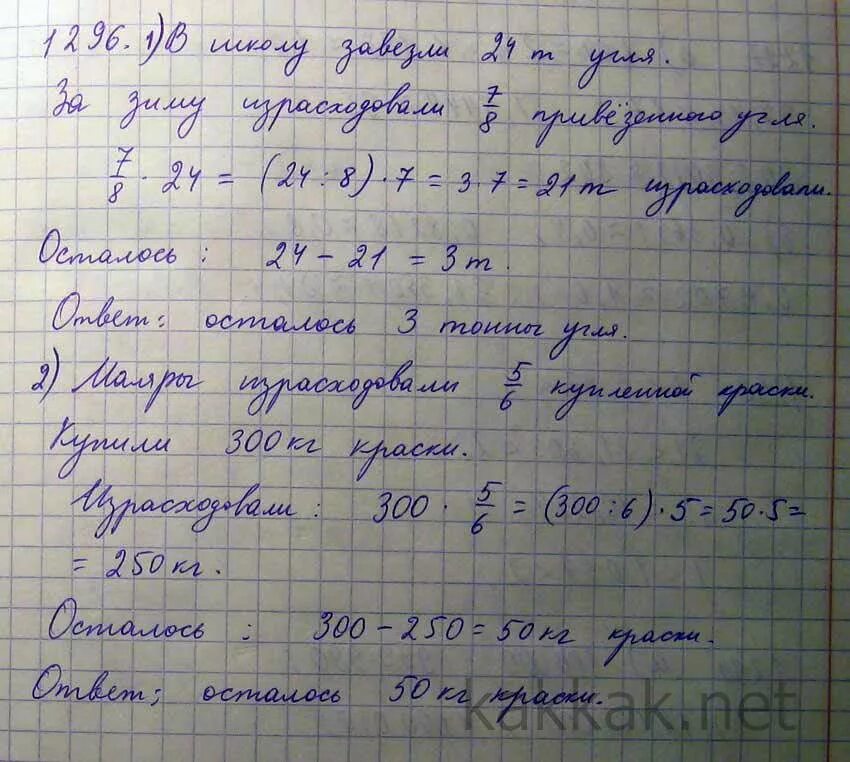 1296. 1) В школу завезли 24 т угля.
За зиму израсходовали 7/8 привезенного угля.
7/8 · 24 = (24 : 8) · 7 = 3 · 7 = 21 т израсходовали.
Осталось : 24 - 21 = 3 т.
Ответ: осталось 3 тонны угля.
2) Маляры израсходовали 5/6 купленной краски.
Купили 300 кг краски.
Израсходовали : 300 · 5/6 = (300 : 6) · 5 = 50 · 5 =
= 250 кг.
Осталось : 300 - 250 = 50 кг краски.
Ответ; осталось 50 кг краски.
kakkak.net